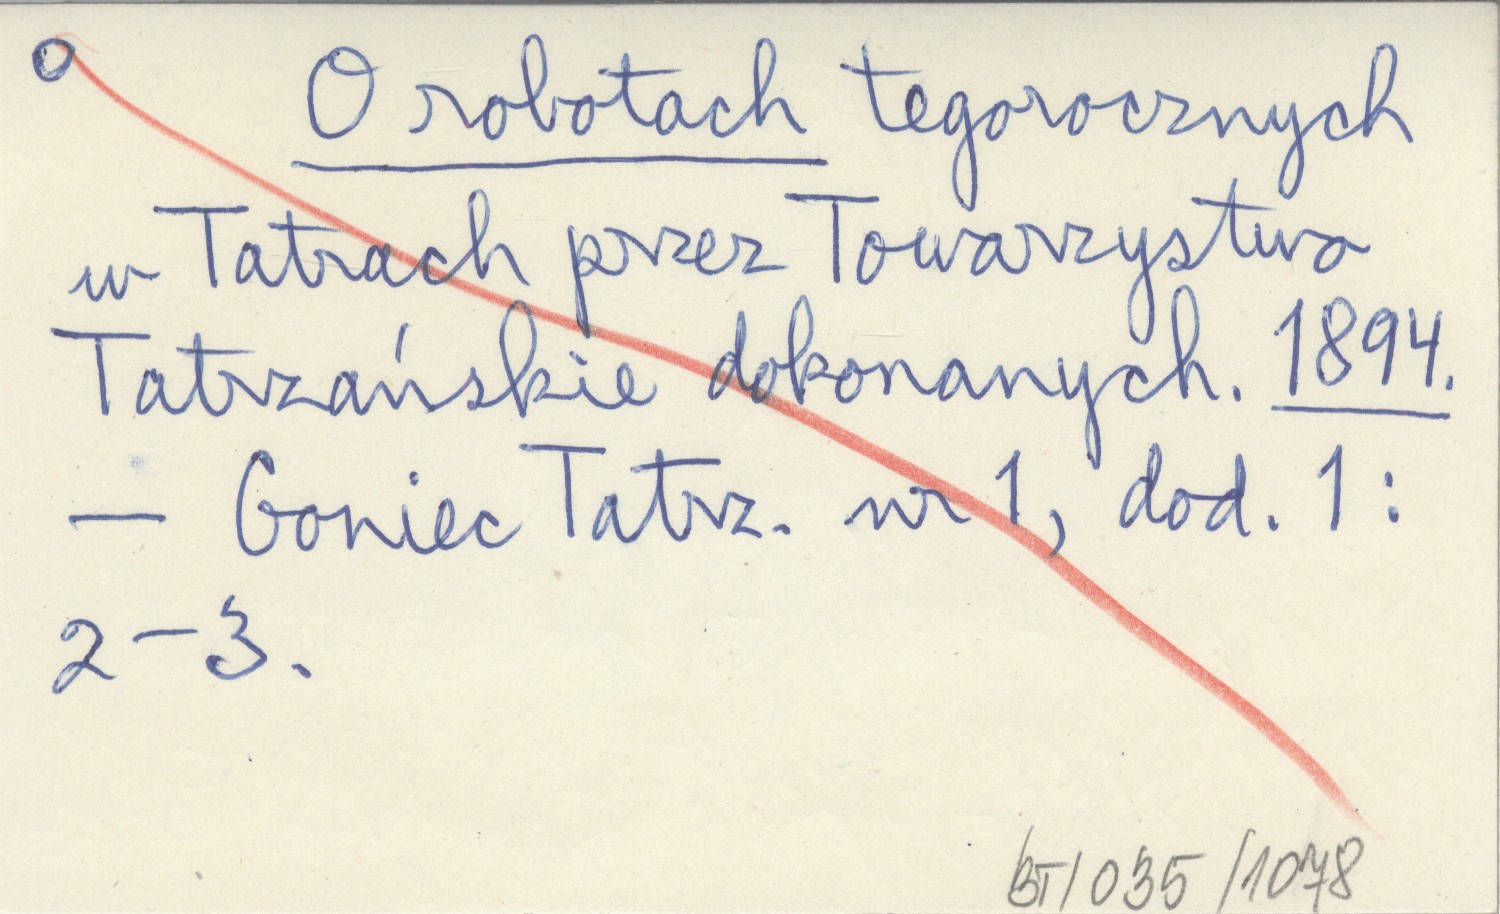 O robotach tegorocznych
w Tatrach przez Towarzystwo
Tatrzańskie dokonanych. 1894.
— Goniec Tatrz. nr 1, dod. 1:
2–3.
BT/035/1078